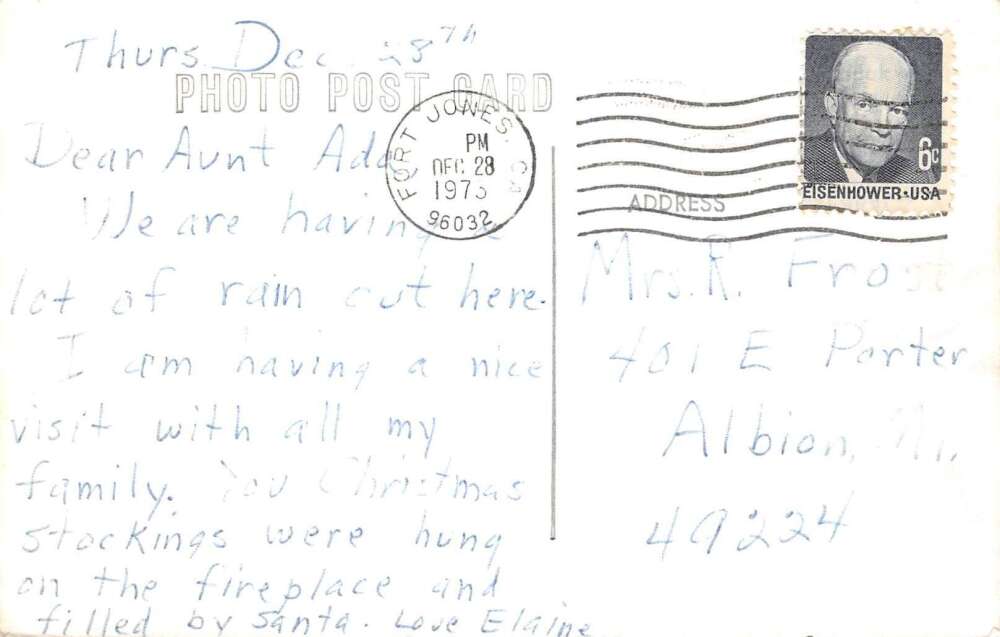 Thurs Dec 28th
PHOTO POST CARD
Dear Aunt Ada
We are having a
lot of rain out here.
I am having a nice
visit with all my
family. You Christmas
stockings were hung
on the fireplace and
filled by Santa. Love Elaine
FORT JONES, CA
PM
DEC 28
96032
6c
EISENHOWER·USA
ADDRESS
Mrs. R. Frost
401 E Porter
Albion, Mi.
49224